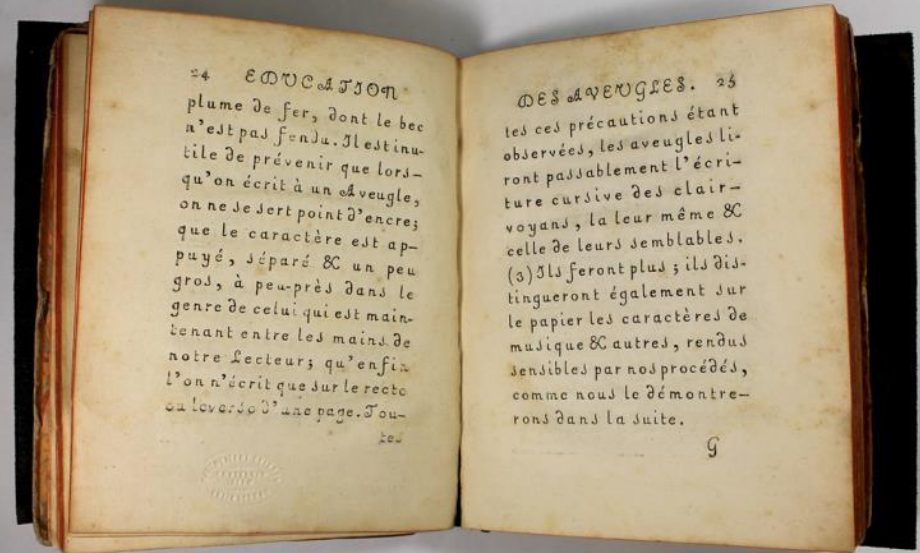 24 EDVCATION
plume de fer, dont le bec
n'est pas fendu. Il est inu-
tile de prévenir que lors-
qu'on écrit à un Aveugle,
on ne se sert point d'encre;
que le caractère est ap-
puyé, séparé & un peu
gros, à peu-près dans le
genre de celui qui est main-
tenant entre les mains de
notre Lecteur; qu'enfin
l'on n'écrit que sur le recto
ou le verso d'une page. Tou-
tes
DES AVEVGLES. 25
tes ces précautions étant
observées, les aveugles li-
ront passablement l'écri-
ture cursive des clair-
voyans, la leur même &
celle de leurs semblables.
(3) Ils feront plus; ils dis-
tingueront également sur
le papier les caractères de
musique & autres, rendus
sensibles par nos procédés,
comme nous le démontre-
rons dans la suite.
G